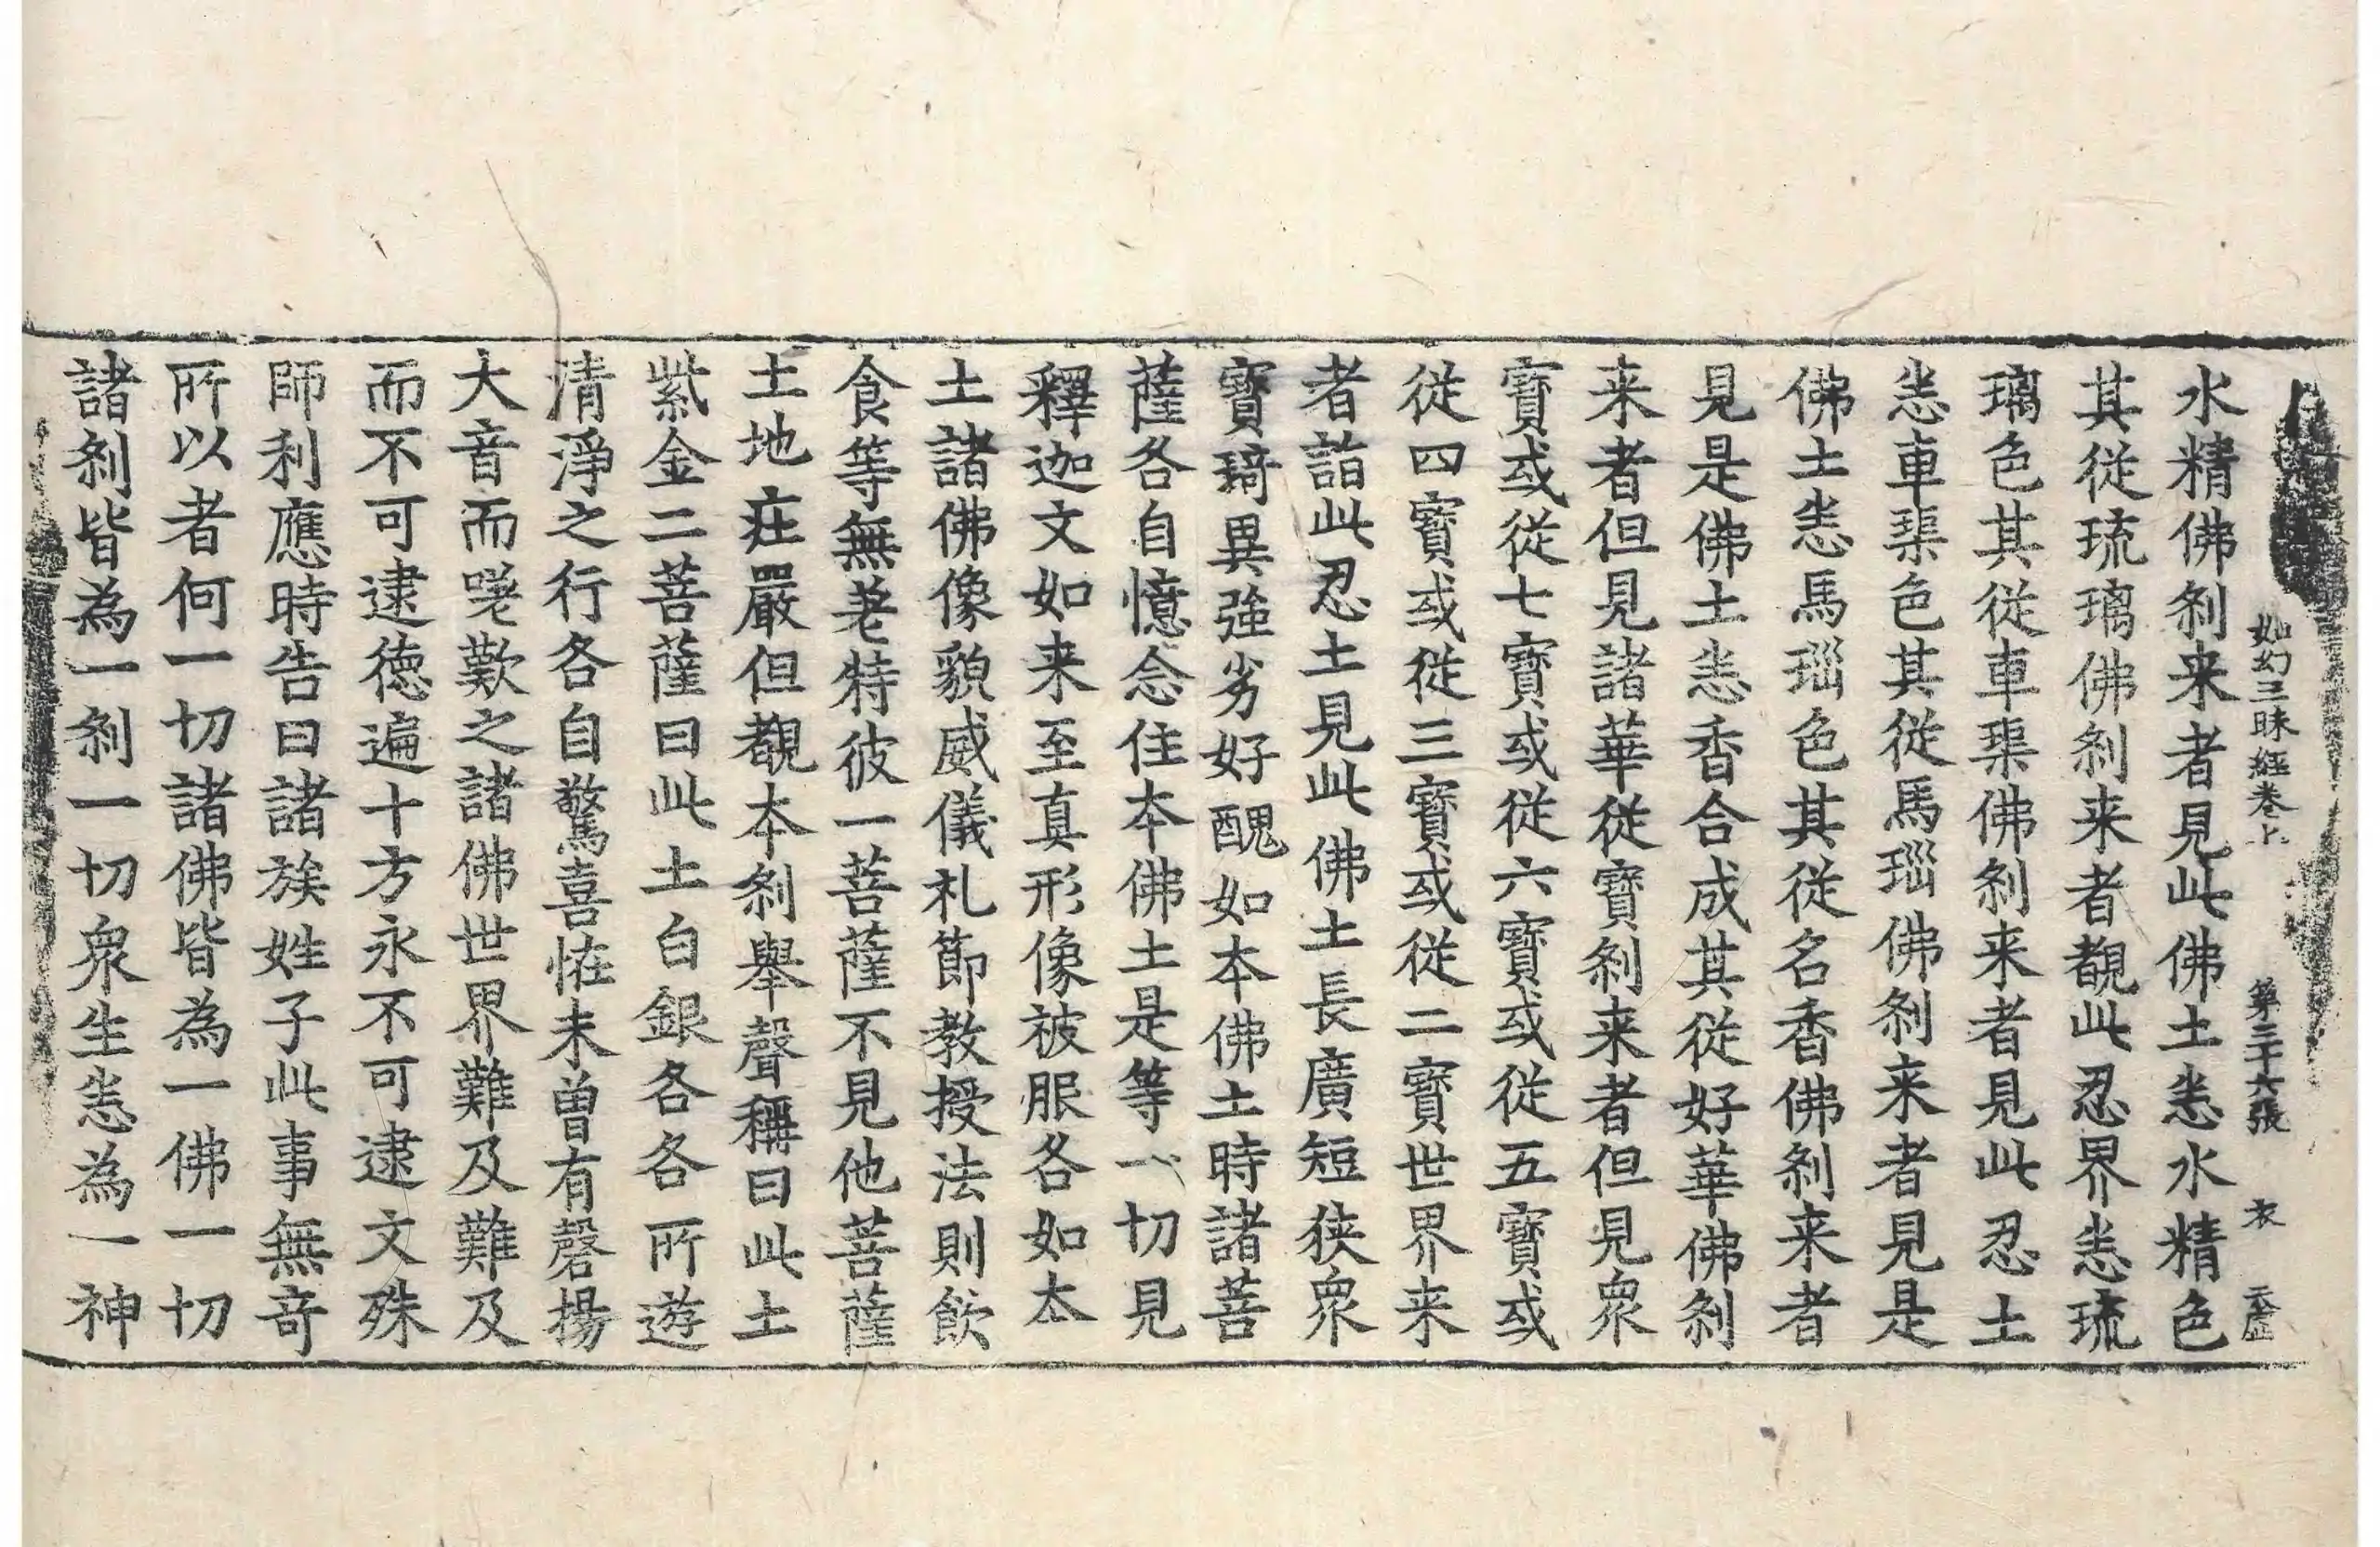 如幻三昧經卷上 第三十六張 衣
水精佛刹来者見此佛土悉水精色
其從琉璃佛刹来者覩此忍界悉琉
璃色其從車磲佛刹来者見此忍土
悉車磲色其從馬瑙佛刹来者見是
佛土悉馬瑙色其從名香佛刹来者
見是佛土悉香合成其從好華佛刹
来者但見諸華從寳刹来者但見衆
寳或從七寳或從六寳或從五寳或
從四寳或從三寳或從二寳世界来
者詣此忍土見此佛土長廣短狹衆
寳琦異強劣好醜如本佛土時諸菩
薩各自憶念住本佛土是等一切見
釋迦文如来至真形像被服各如本
土諸佛像貌威儀礼節教授法則飲
食等無差特彼一菩薩不見他菩薩
土地莊嚴但覩本刹舉聲稱曰此土
紫金二菩薩曰此土白銀各各所遊
清淨之行各自驚喜恠未曾有磬揚
大音而嗟歎之諸佛世界難及難及
而不可逮德遍十方永不可逮文殊
師利應時告曰諸族姓子此事無奇
所以者何一切諸佛皆為一佛一切
諸刹皆為一刹一切衆生悉為一神